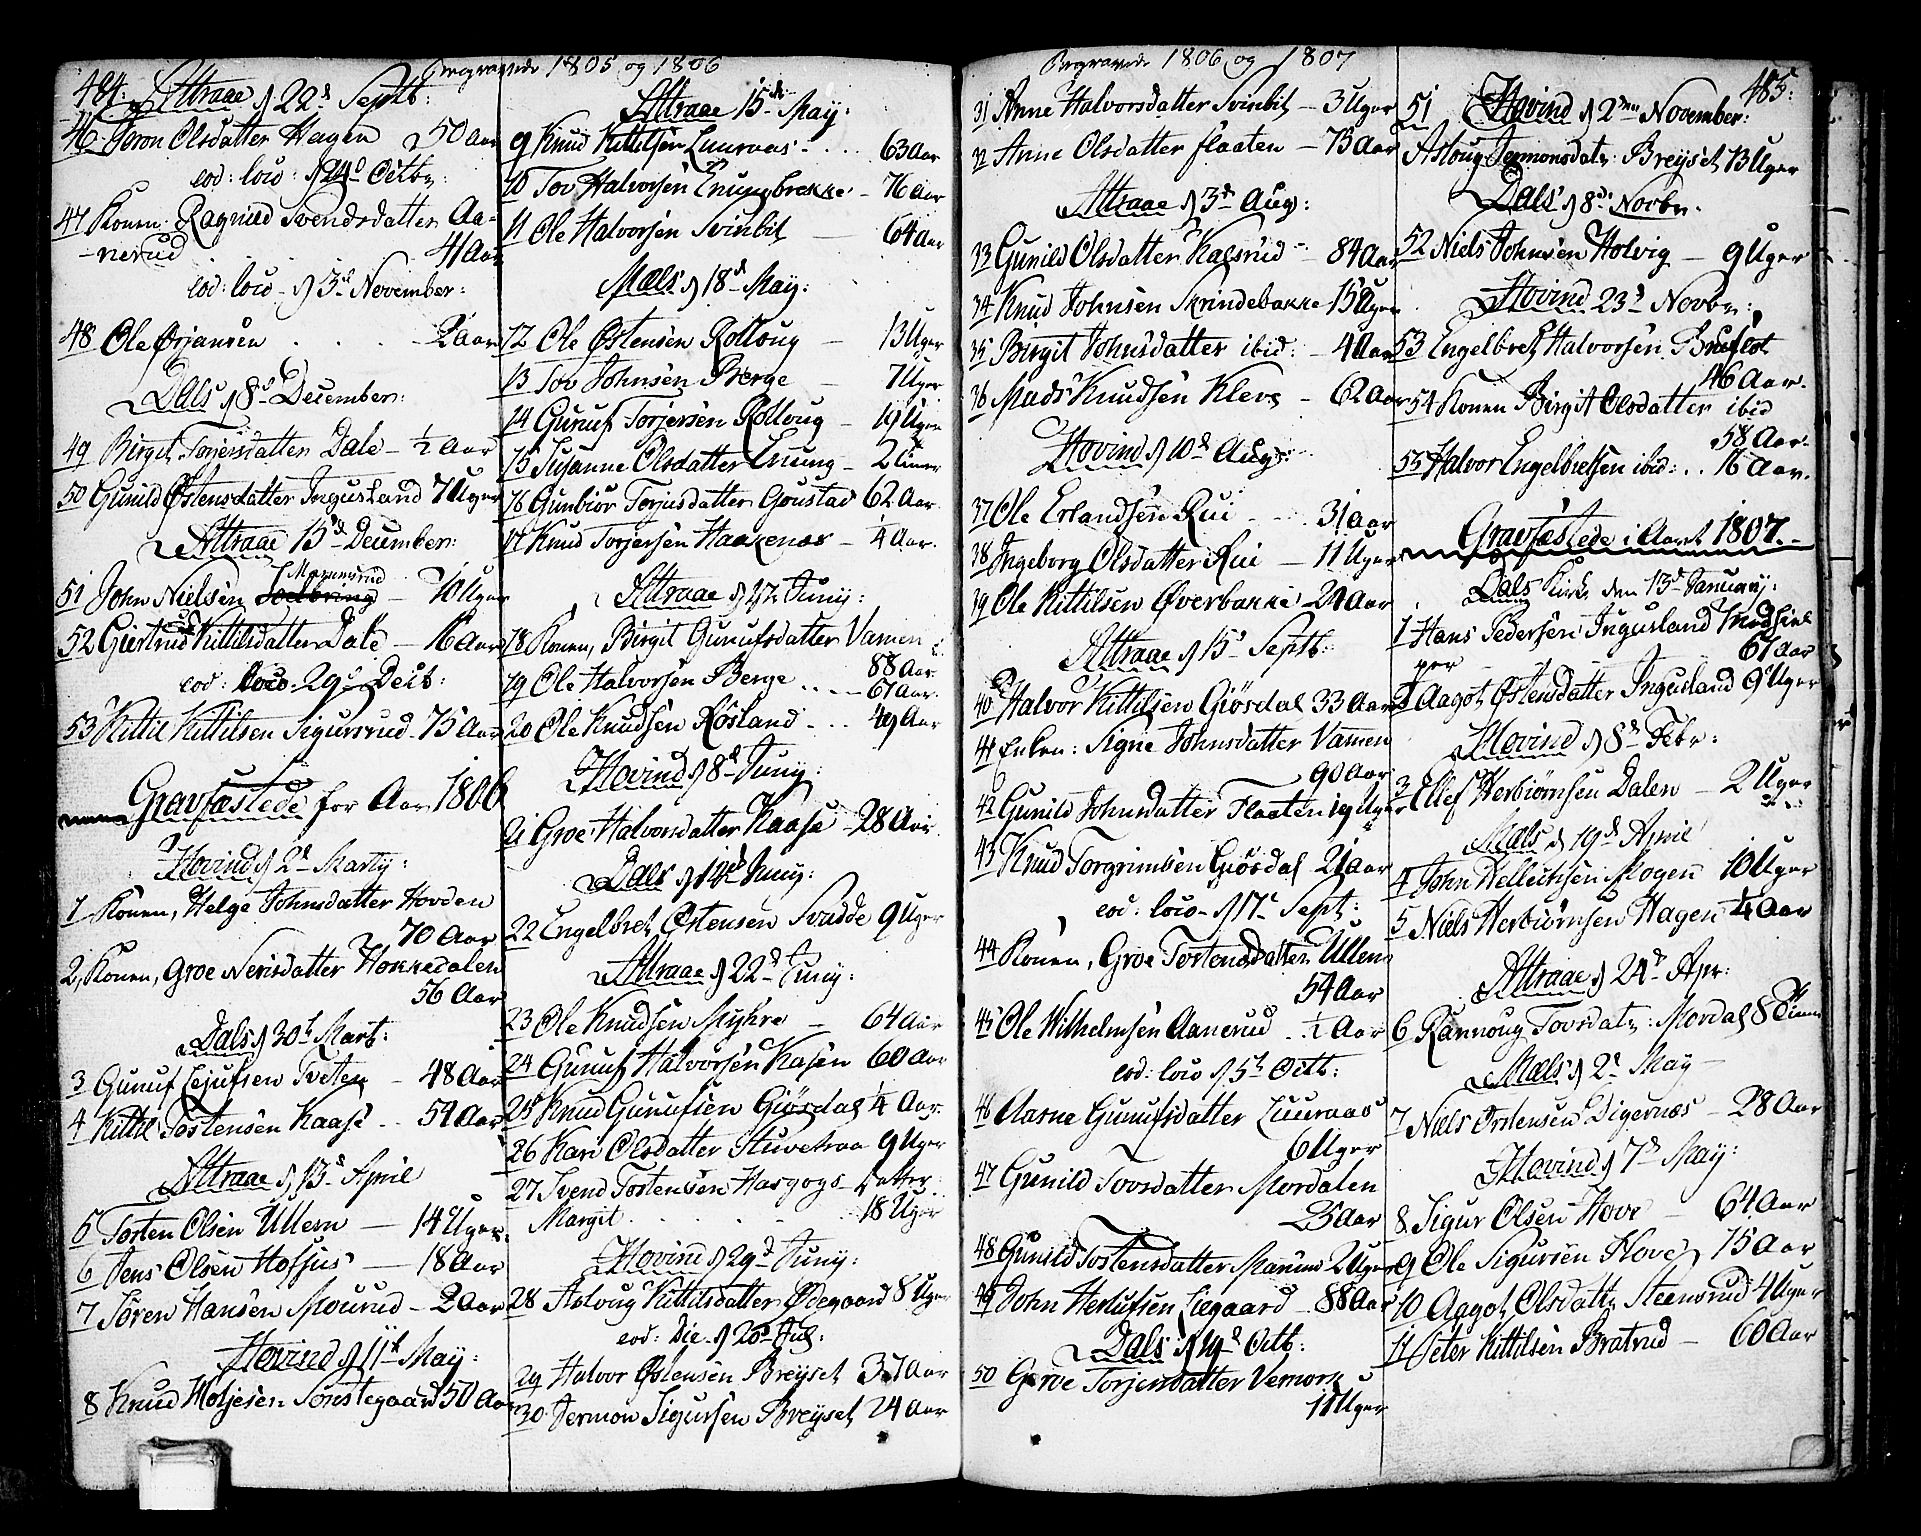 484.
Begravede 1805 og 1806
Attraae d 22d Septb:
46 Joron Olsdatter Hagen 50 Aar
eod: loco: d 24d Octbr:
47 Konen Ragnild Svendsdatter Aa-
-nerud 41 Aar
eod: loco d 3d November:
48 Ole Ørjansen . . . 2 Aar
Dals d 8d December:
49 Birgit Torjersdatter Dale - ½ Aar
50 Gunild Østensdatter Ingusland 7 Uger
Attraae 15d December:
51 John Nielsen Marumsrud - 10 Uger
52 Giertrud Kittilsdatter Dale - 16 Aar
eod: loco: 29d Decb:
53 Kittil Kittilsen Sigursrud - 75 Aar
Gravfæstede for Aar 1806
Hovind d 2d Marty:
1 Konen, Helge Johnsdatter Hovden
70 Aar
2, Konen, Groe Nerisdatter Hokkedalen
56 Aar
Dals d 30d Mart:
3 Gunuf Lejufsen Tveten - 48 Aar
4 Kittil Tostensen Kaase . . 54 Aar
Attraae d 13d April
5 Tosten Olsen Ullern - 14 Uger.
6 Jens Olsen Hofsus - 18 Aar
7 Søren Hansen Mourud - 2 Aar
Hovind d 11d May:
8 Knud Holjesen Sønstegaard 50 Aar
Attraae 15de May:
9 Knud Kittilsen Luuraas . . . 63 Aar
10 Tov Halvorsen Enungbrekke - 76 Aar
11 Ole Halvorsen Svinbit - 64 Aar
Mæls d 18d May:
12 Ole Østensen Rolloug - 13 Uger
13 Tov Johnsen Berge - 7 Uger
14 Gunuf Torjersen Rolloug - 19 Uger
15 Susanne Olsdatter Enung - 2 timer
16 Gunbiør Torjusdatter Goustad 62 Aar
17 Knud Torjersen Haakenæs - ¼ Aar.
Attraae d 27d Juny:
18 Konen, Birgit Gunufsdatter Vamen
88 Aar
19 Ole Halvorsen Berge . . - 67 Aar.
20 Ole Knudsen Røsland - . . 49 Aar
Hovind d 8d Juny:
21 Groe Halvorsdatter Kaase - 28 Aar.
Dals d 14d Juny:
22 Engelbret Østensen Svadde 9 Uger
Attraae d 22d Juny:
23 Ole Knudsen Myhre - 64 Aar
24 Gunuf Halvorsen Kasen 60 Aar
25 Knud Gunufsen Giøsdal ¼ Aar.
26 Kari Olsdatter Stuvetraa 9 Uger
27 Svend Tostensen Hasgogs - Datter
Margit . . . . 18 Uger
Hovind d 29d Juny:
28 Asloug Kittilsdatter Ødegaard 8 Uger
eod: Die d 20d Jul:
29 Halvor Østensen Breyset 37 Aar
30 Jermon Sigursen Breyset 24 Aar
Begravede 1806 og 1807
31 Anne Halvorsdatter Svinbit - 3 Uger
32 Anne Olsdatter flaaten - 73 Aar
Attraae d 3d Aug:
33 Gunild Olsdatter Kalsrud - 84 Aar
34 Knud Johnsen Skrindebakke 15 Uger
35 Birgit Johnsdatter ibid: - 4 Aar
36 Mads Knudsen Kleve - 62 Aar
Hovind d 10d Aug:
37 Ole Erlandsen Rui . . . 31 Aar
38 Ingeborg Olsdatter Rui - 11 Uger
39 Ole Kittilsen Øverbakke 21 Aar
Attraae d 15d Septb:
40 Halvor Kittilsen Giøsdal 33 Aar
41 Enken: Signe Johnsdatter Vamen
90 Aar
42 Gunild Johnsdatter Flaaten 19 Uger
43 Knud Torgrimsen Giøsdal 21 Aar
eod: loco d 17d Sept:
44 Konen, Groe Tostensdatter Ullern
54 Aar
45 Ole Wilhelmsen Aanerud . . ½ Aar
eod: loco d 5d Octb:
46 Aasne Gunufsdatter Luuraas
6 Uger
47 Gunild Tovsdatter Mordalen
25 Aar
48 Gunild Tostensdatter Marum 2 Uger
49 John Herlufsen Liegaard - 88 Aar
Dals d 19d Octb:
50 Groe Torjersdatter Vemork
11 Uger
485:
51 Hovind d 2den November:
Asloug Jermonsdatr: Breyset 13 Uger
Dals d 8d Novbr.
52 Niels Johnsen Holvig - 9 Uger
Hovind 23d Novbr:
53 Engelbret Halvorsen Bræflot
46 Aar.
54 Konen Birgit Olsdatter ibid
58 Aar.
55 Halvor Engelbretsen ibid: . . 16 Aar.
Gravfæstede i Aaret 1807.-
Dals Kirke den 13d January:
1 Hans Pedersen Ingusland Medhiel
per 67 Aar
2 Aagot Østensdatter Ingusland 9 Uger
Hovind d 8d Febr:
3 Ellef Herbiørnsen Dalen - 2 Uger
Mæls d 19d April
4 John Hellechsen Mogen 10 Uger
5 Niels Herbiørnsen Hagen ¼ Aar
Attraae d 24d Apr:
6 Rannoug Tovsdatr: Mordal 8 Timer
Mæls d 2d May -
7 Niels Østensen Digernæs - 28 Aar
Hovind d 7d May:
8 Sigur Olsen Hove - 64 Aar
9 Ole Sigursen Hove, 15 Aar
10 Aagot Olsdattr Steensrud 4 Uger
11 Peter Kittilsen Bratrud - 60 Aar